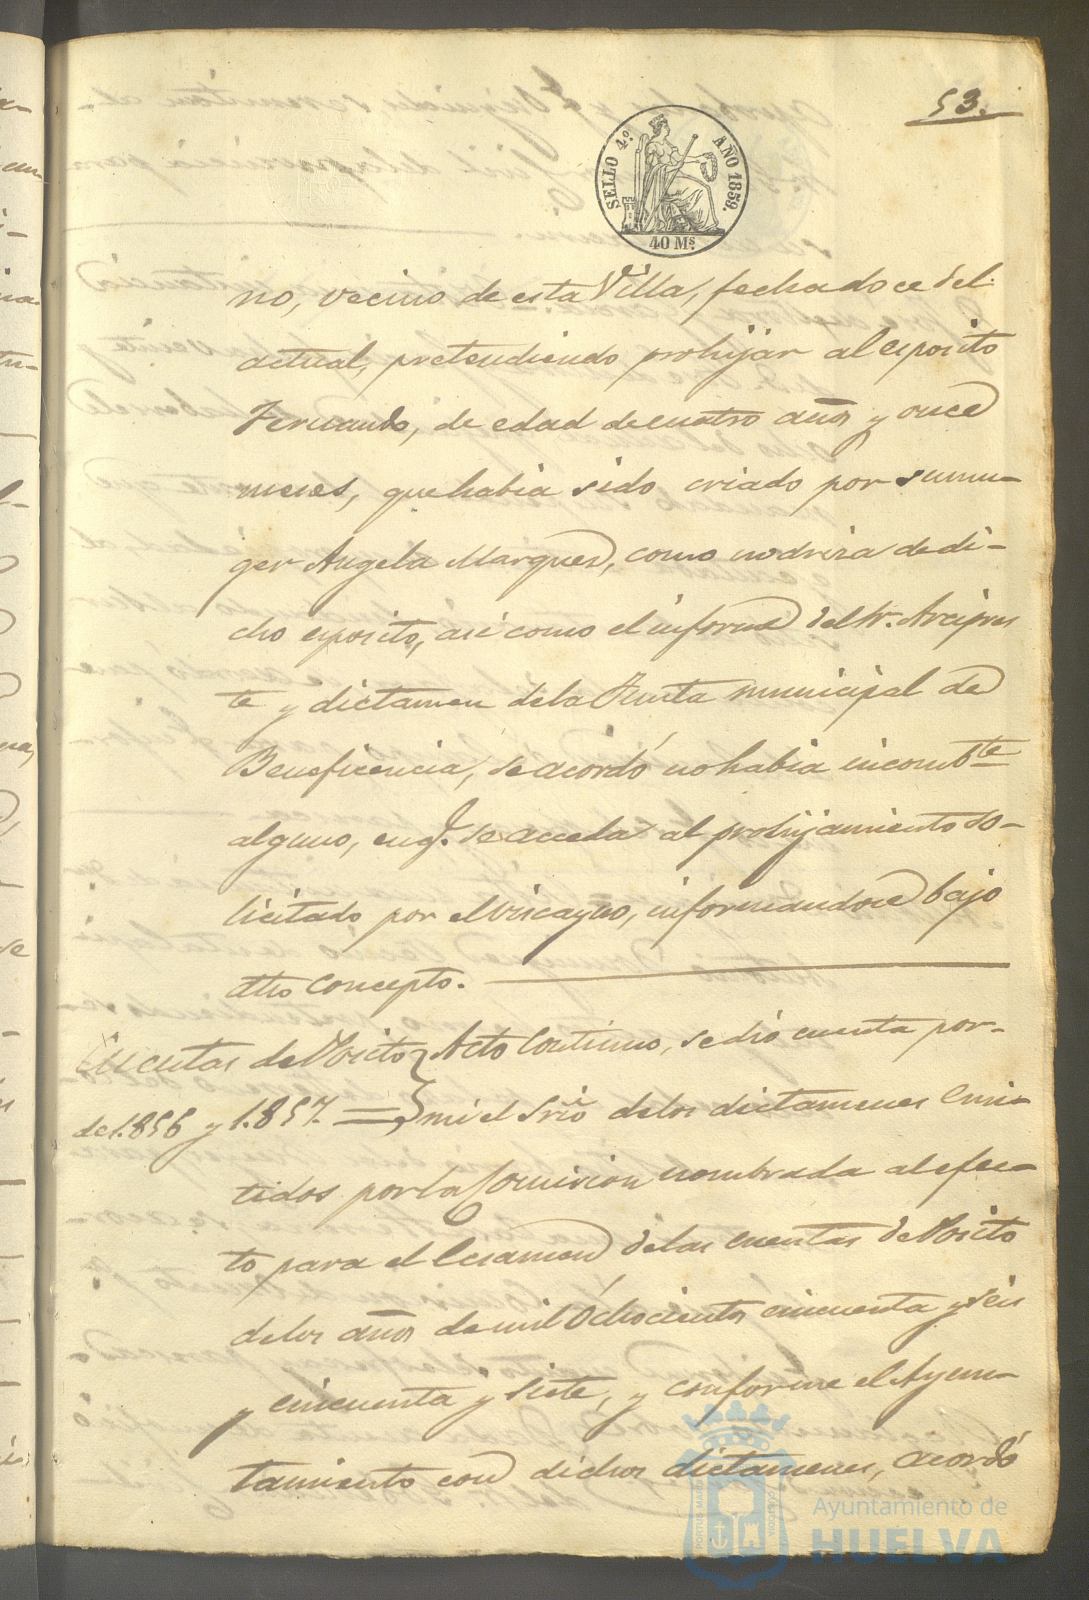 53.
SELLO 4º. AÑO 1859.
40 Mˢ.
no, vecino de esta Villa, fecha doce del
actual, pretendiendo prohijar al esposito
Fernando, de edad de cuatro años y once
meses, que habia sido criado por su mu-
ger Angela Marquez, como nodriza de di-
cho esposito, asi como el informe del Sr. Arcipres
te y dictamen de la Junta municipal de
Beneficencia, se acordó no habia incombte
alguno, en q. se acceda al prohijamiento so-
licitado por el Viscayno, informandose bajo
dho concepto.
Cuentas de Posito
de 1.856 y 1.857. =
Acto Continuo, se dió cuenta por
mi el Srio de los dictamenes emi-
tidos por la Comision nombrada al efec-
to para el Exsamen de las cuentas de Posito
de los años de mil Ochocientos cincuenta y seis
y cincuenta y siete, y conforme el Ayun-
tamiento con dichos dictamenes, acordó
Ayuntamiento de
HUELVA